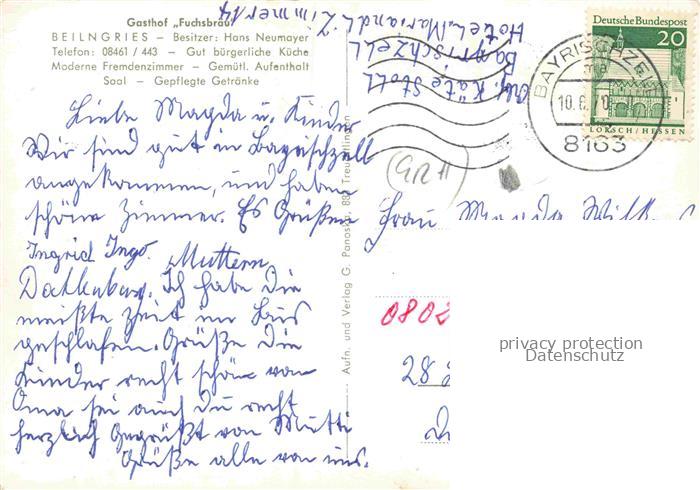 Gasthof „Fuchsbräu"
BEILNGRIES – Besitzer: Hans Neumayer
Telefon: 08461 / 443 – Gut bürgerliche Küche
Moderne Fremdenzimmer – Gemütl. Aufenthalt
Saal – Gepflegte Getränke
Liebe Magda u. Kinder
Wir sind gut in Bayrischzell
angekommen, und haben
schöne Zimmer. Es Grüßen
Ingrid Ingo. Muttern
Ich habe die
meißte Zeit im Bus
geschlafen. Grüße die
Kinder recht schön von
Oma sei auch Du recht
herzlich Gegrüßt von Mutti
Grüße alle von uns.
Abs. Käte Stoll
Bayrischzell
Hotel Mariandl. Zimmer 14
Aufn. und Verlag G. Panostr., 88 Treuchtlingen
Deutsche Bundespost
20
LORSCH/HESSEN
BAYRISCHZELL
10.6.70
8163
(GRH)
Frau Magda
0802
28
privacy protection
Datenschutz